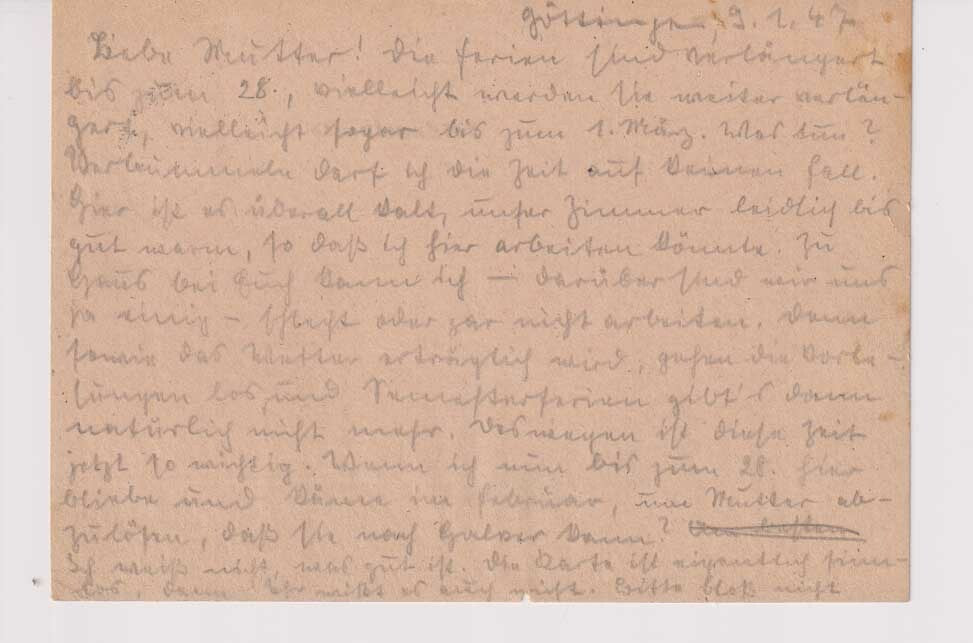 Göttingen, 9.1.47
Liebe Mutter! Die Ferien sind verlängert
bis zum 28., vielleicht werden sie weiter verlän-
gert, vielleicht sogar bis zum 1. März. Was tun?
Verbummeln darf ich die Zeit auf keinen Fall.
Hier ist es überall kalt, unser Zimmer leidlich bis
gut warm, so daß ich hier arbeiten könnte. Zu
Haus bei Euch kann ich – darüber sind wir uns
ja einig – schlecht oder gar nicht arbeiten. Denn
sowie das Wetter erträglich wird, gehen die Vorle-
sungen los und Semesterferien gibt's dann
natürlich nicht mehr. Deswegen ist diese Zeit
jetzt so wichtig. Wenn ich nun bis zum 28. hier
bliebe und käme im Februar, um Mutter ab-
zulösen, daß sie nach kann?
Ich weiß nicht, was gut ist. Die Karte ist eigentlich sinn-
los, denn Ihr wißt es auch nicht. Bitte bloß nicht